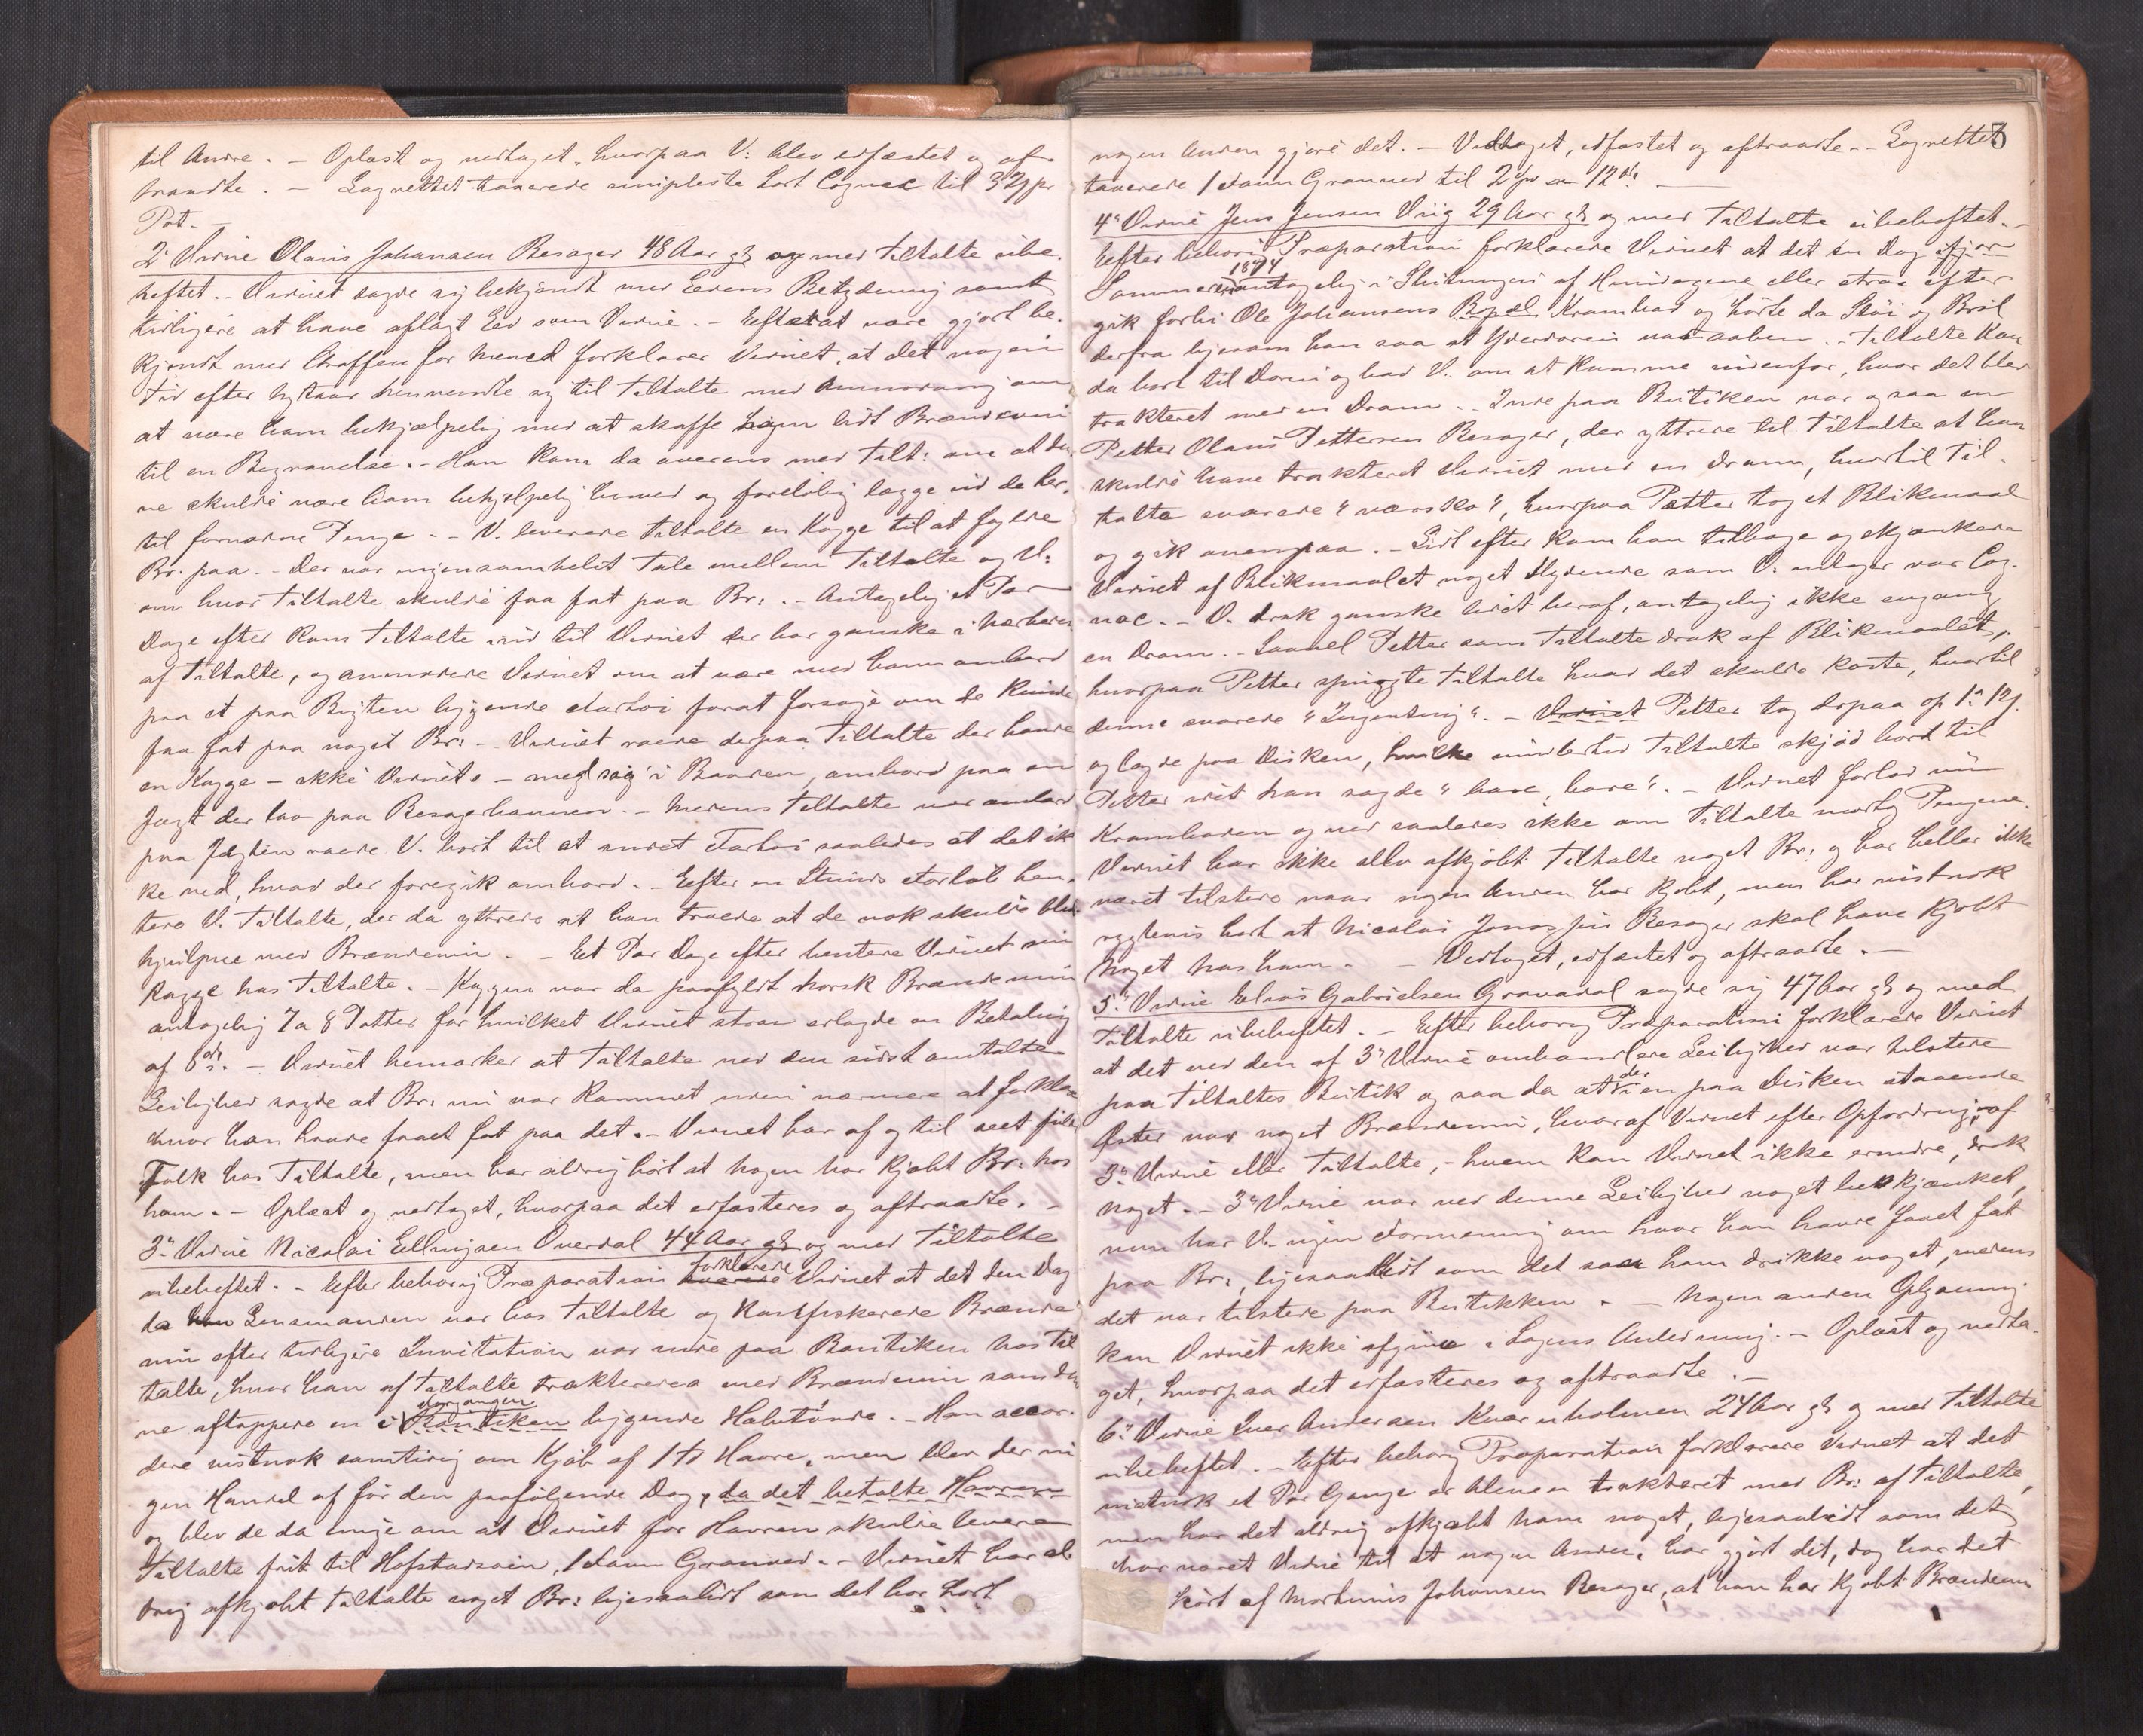 til Andre. – Oplæst og vedtaget, hvorpaa V: blev edfæstet og af-
traadte. – Lagrettet taxerede simpleste Sort Cognac til pr
Pot. –
2' Vidne Olaus Johansen Besager 48 Aar gl og med Tiltalte ube-
heftet. – Vidnet sagde sig bekjendt med Edens Betydning samt
tidligere at have aflagt Eed som Vidne. – Efterat være gjort be-
kjendt med Straffen for Mened forklarer Vidnet, at det nogen
Tid efter Nytaar henvendte sig til Tiltalte med Anmodning om
at være ham behjælpelig med at skaffe ham lidt Brændeviin
til en Begravelse. – Han kom da overens med Tilt: om at den-
ne skulde være ham behjelpelig herved og foreløbig lægge ud de her-
til fornødne Penge. – V. leverede Tiltalte en Kagge til at fylde
Br. paa. – Der var ingensomhelst Tale mellem Tiltalte og V:
om hvor Tiltalte skulde faa fat paa Br: . – Antagelig et Par
Dage efter kom Tiltalte ud til Vidnet der bor ganske i Nærheden
af Tiltalte, og anmodede Vidnet om at være med ham ombord
paa et paa Bugten liggende Fartøi forat forsøge om de kunde
faa fat paa noget Br: – Vidnet roede derpaa Tiltalte der havde
en Kagge – ikke Vidnets – med sig i Baaden, ombord paa en
Jagt der laa paa Besagerhavnen. – Medens Tiltalte var ombord
paa Jagten roede V. bort til et andet Fartøi saaledes at det ik-
ke ved, hvad der foregik ombord. – Efter en Stunds Forløb hen-
tede V. Tiltalte, der da yttrede at han troede at de nok skulde blive
hjulpne med Brændeviin. – Et Par Dage efter hentede Vidnet sin
Kagge hos Tiltalte. – Kaggen var da paafyldt norsk Brændeviin
antagelig 7 a 8 Potter for hvilket Vidnet strax erlagde en Betaling
af 8 – Vidnet bemærker at Tiltalte ved den sidst omtalte
Leilighed sagde at Br: nu var kommet uden nærmere at forklare
hvor han havde faaet fat paa det. – Vidnet har af og til seet fulde
Folk hos Tiltalte, men har aldrig hørt at nogen har kjøbt Br: hos
ham. – Oplæst og vedtaget, hvorpaa det edfæstedes og aftraadte. –
3' Vidne Nicolai Ellingsen Overdal 44 Aar gl og med Tiltalte
ubeheftet. – Efter behørig Præparation forklarede Vidnet at det den Dag
da Lensmanden var hos Tiltalte og konfiskerede Brænde-
viin efter tidligere Invitation var inde paa Boutiken hos Til-
talte, hvor han af Tiltalte trakteredes med Brændeviin som den-
ne aftappede en i Boutiken liggende Halvtønde. – Han accor-
derede vistnok samtidig om Kjøb af 1 Td Havre, men blev der in-
gen Handel af før den paafølgende Dag, da det betalte Havren
og blev de da enige om at Vidnet for Havren skulde levere
Tiltalte frit til Hofstadsøen, 1 Favn Granved. – Vidnet har al-
drig afkjøbt Tiltalte noget Br: ligesaalidt som det har hørt
3
nogen Anden gjøre det. – Vedtaget, edfæstet og aftraadte. – Lagrettet
taxerede 1 Favn Granved til 2
4' Vidne Jens Jensen Viig 29 Aar gl og med Tiltalte ubeheftet. –
Efter behørig Præparation forklarede Vidnet at det en Dag ifjor
Sommer 1874 antagelig i Slutningen af Hundedagene eller strax efter
gik forbi Ole Johansens Bopel Krambod og hørte da Støi og Brøl
derfra ligesom han saa at Yderdøren var aaben. – Tiltalte kom
da bort til Døren og bad V. om at komme indenfor, hvor det blev
trakteret med en Dram. – Inde paa Butiken var ogsaa en
Petter Olaus Pettersen Besager, der yttrede til Tiltalte at han
skulde have trakteret Vidnet med en Dram, hvortil Til-
talte svarede " værsko ", hvorpaa Petter tog et Blikmaal
og gik ovenpaa. – Lidt efter kom han tilbage og skjænkede
Vidnet af Blikmaalet noget Flydende som V: antager var Cog-
nac. – V. drak ganske lidet heraf, antagelig ikke engang
en Dram. – Saavel Petter som Tiltalte drak af Blikmaalet,
hvorpaa Petter spurgte Tiltalte hvad det skulde koste, hvortil
denne svarede "Ingenting". – Vidnet Petter tog derpaa op
og lagde paa Disken, hvilke imidlertid Tiltalte skjød bort til
Petter idet han sagde " bare, bare ". – Vidnet forlod nu
Kramboden og ved saaledes ikke om Tiltalte modtog Pengene.
Vidnet har ikke selv afkjøbt Tiltalte noget Br: og har heller ikke
været tilstede naar nogen Anden har kjøbt, men har vistnok
rygtevis hørt at Nicolai Jonassen Besager skal have kjøbt
Noget hos ham. – Vedtaget, edfæstet og aftraadte. –
5' Vidne Elias Gabrielsen Gravdal sagde sig 47 Aar gl og med
Tiltalte ubeheftet. – Efter behørig Præparation forklarede Vidnet
at det ved den af 3' Vidne omhandlede Leilighed var tilstede
paa Tiltaltes Butik og saa da at der i en paa Disken staaende
Bøtte var noget Brændeviin, hvoraf Vidnet efter Opfordring af
3' Vidne eller Tiltalte, – hvem kan Vidnet ikke erindre, drak
noget. – 3' Vidne var ved denne Leilighed noget beskjænket,
men har V. ingen Formening om hvor han havde faaet fat
paa Br:, ligesaalidt som det saa ham drikke noget, medens
det var tilstede paa Butikken. – Nogen anden Oplysning
kan Vidnet ikke afgive i Sagens Anledning. – Oplæst og vedta-
get, hvorpaa det edfæstedes og aftraadte. –
6' Vidne Iver Andersen Kværnholmen 24 Aar gl og med Tiltalte
ubeheftet. – Efter behørig Præparation forklarede Vidnet at det
vistnok et Par Gange er bleven trakteret med Br: af Tiltalte,
men har det aldrig afkjøbt ham noget, ligesaalidt som det
har været Vidne til at nogen Anden har gjort det, dog har det
hørt af Mortinus Johansen Besager, at han har kjøbt Brændeviin